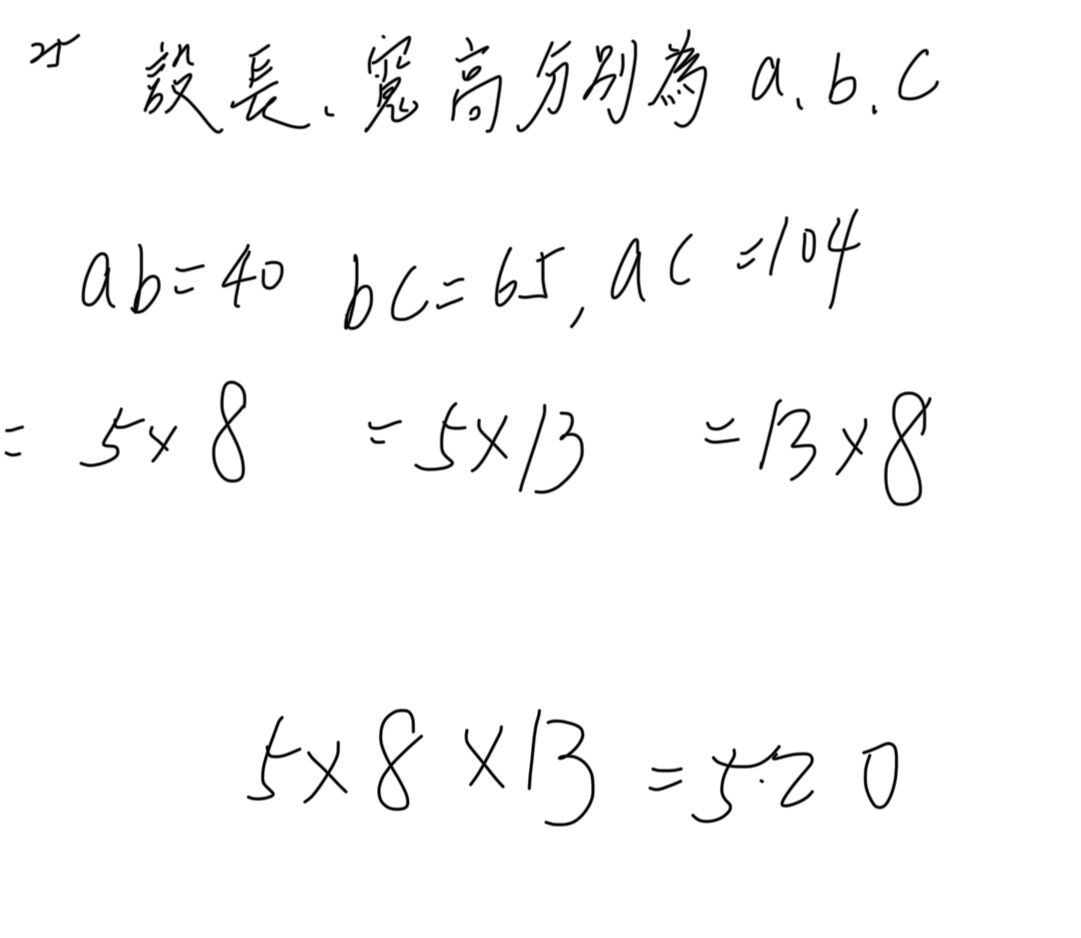 25 設長、寬高分別為 a、b、c
ab=40 bc=65, ac=104
= 5×8 =5×13 =13×8
5×8×13=520